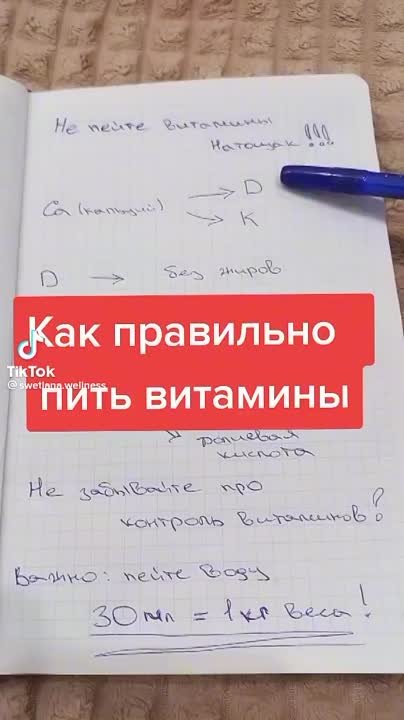 Не пейте витамины
натощак!!!
Ca (кальций) → D
↘ K
D → без жиров
Как правильно
пить витамины
TikTok
@swetlana.wellness
фолиевая
кислота
Не забывайте про
контроль витаминов?
Важно: пейте воду
30 мл = 1 кг веса!